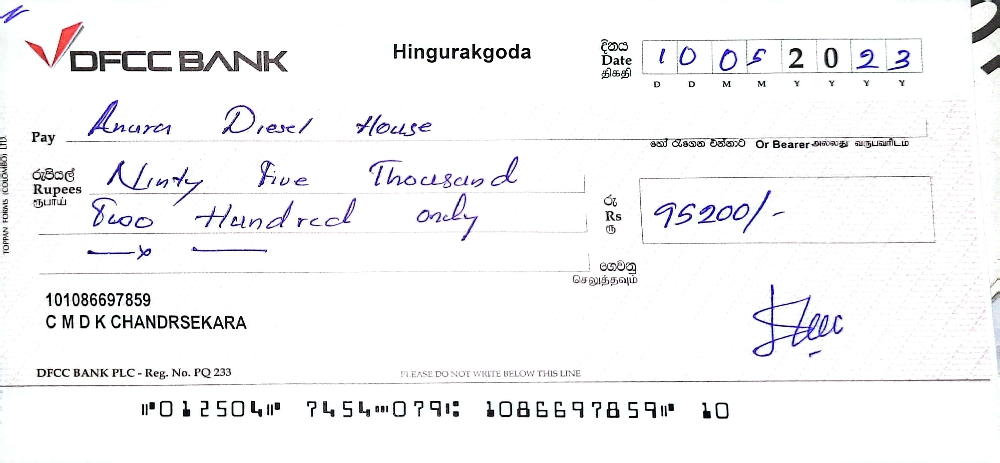 DFCC BANK
Hingurakgoda
දිනය
Date
திகதி
1 0 0 5 2 0 2 3
D D M M Y Y Y Y
Pay Anura Diesel House
හෝ රැගෙන එන්නාට Or Bearer அல்லது வருபவரிடம்
රුපියල්
Rupees
ரூபாய்
Ninty Five Thousand
Two Hundred only
රු
Rs
ரூ
95200/-
ගෙවනු
செலுத்தவும்
101086697859
C M D K CHANDRSEKARA
DFCC BANK PLC - Reg. No. PQ 233
PLEASE DO NOT WRITE BELOW THIS LINE
TOPPAN FORMS (COLOMBO) LTD.
⑈012504⑈ 7454⑉079⑆ 1086697859⑈ 10